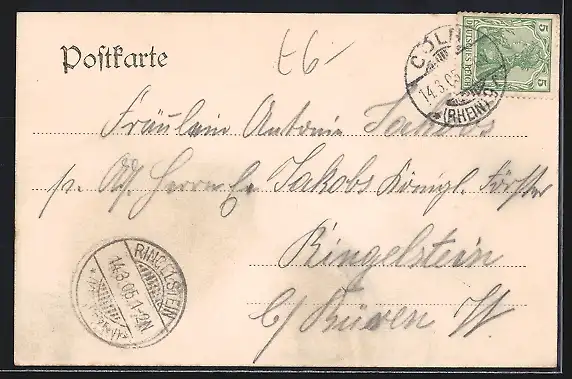 Postkarte
t6-
5 DEUTSCHES REICH 5
CÖLN
14.3.05
*(RHEIN)
Fräulein Antonie Jakobs
p. Ad. Herrn C. Jakobs Königl. Förster
Ringelstein
b/ Büren W.
RINGELSTEIN
14.3.05.1-2N.